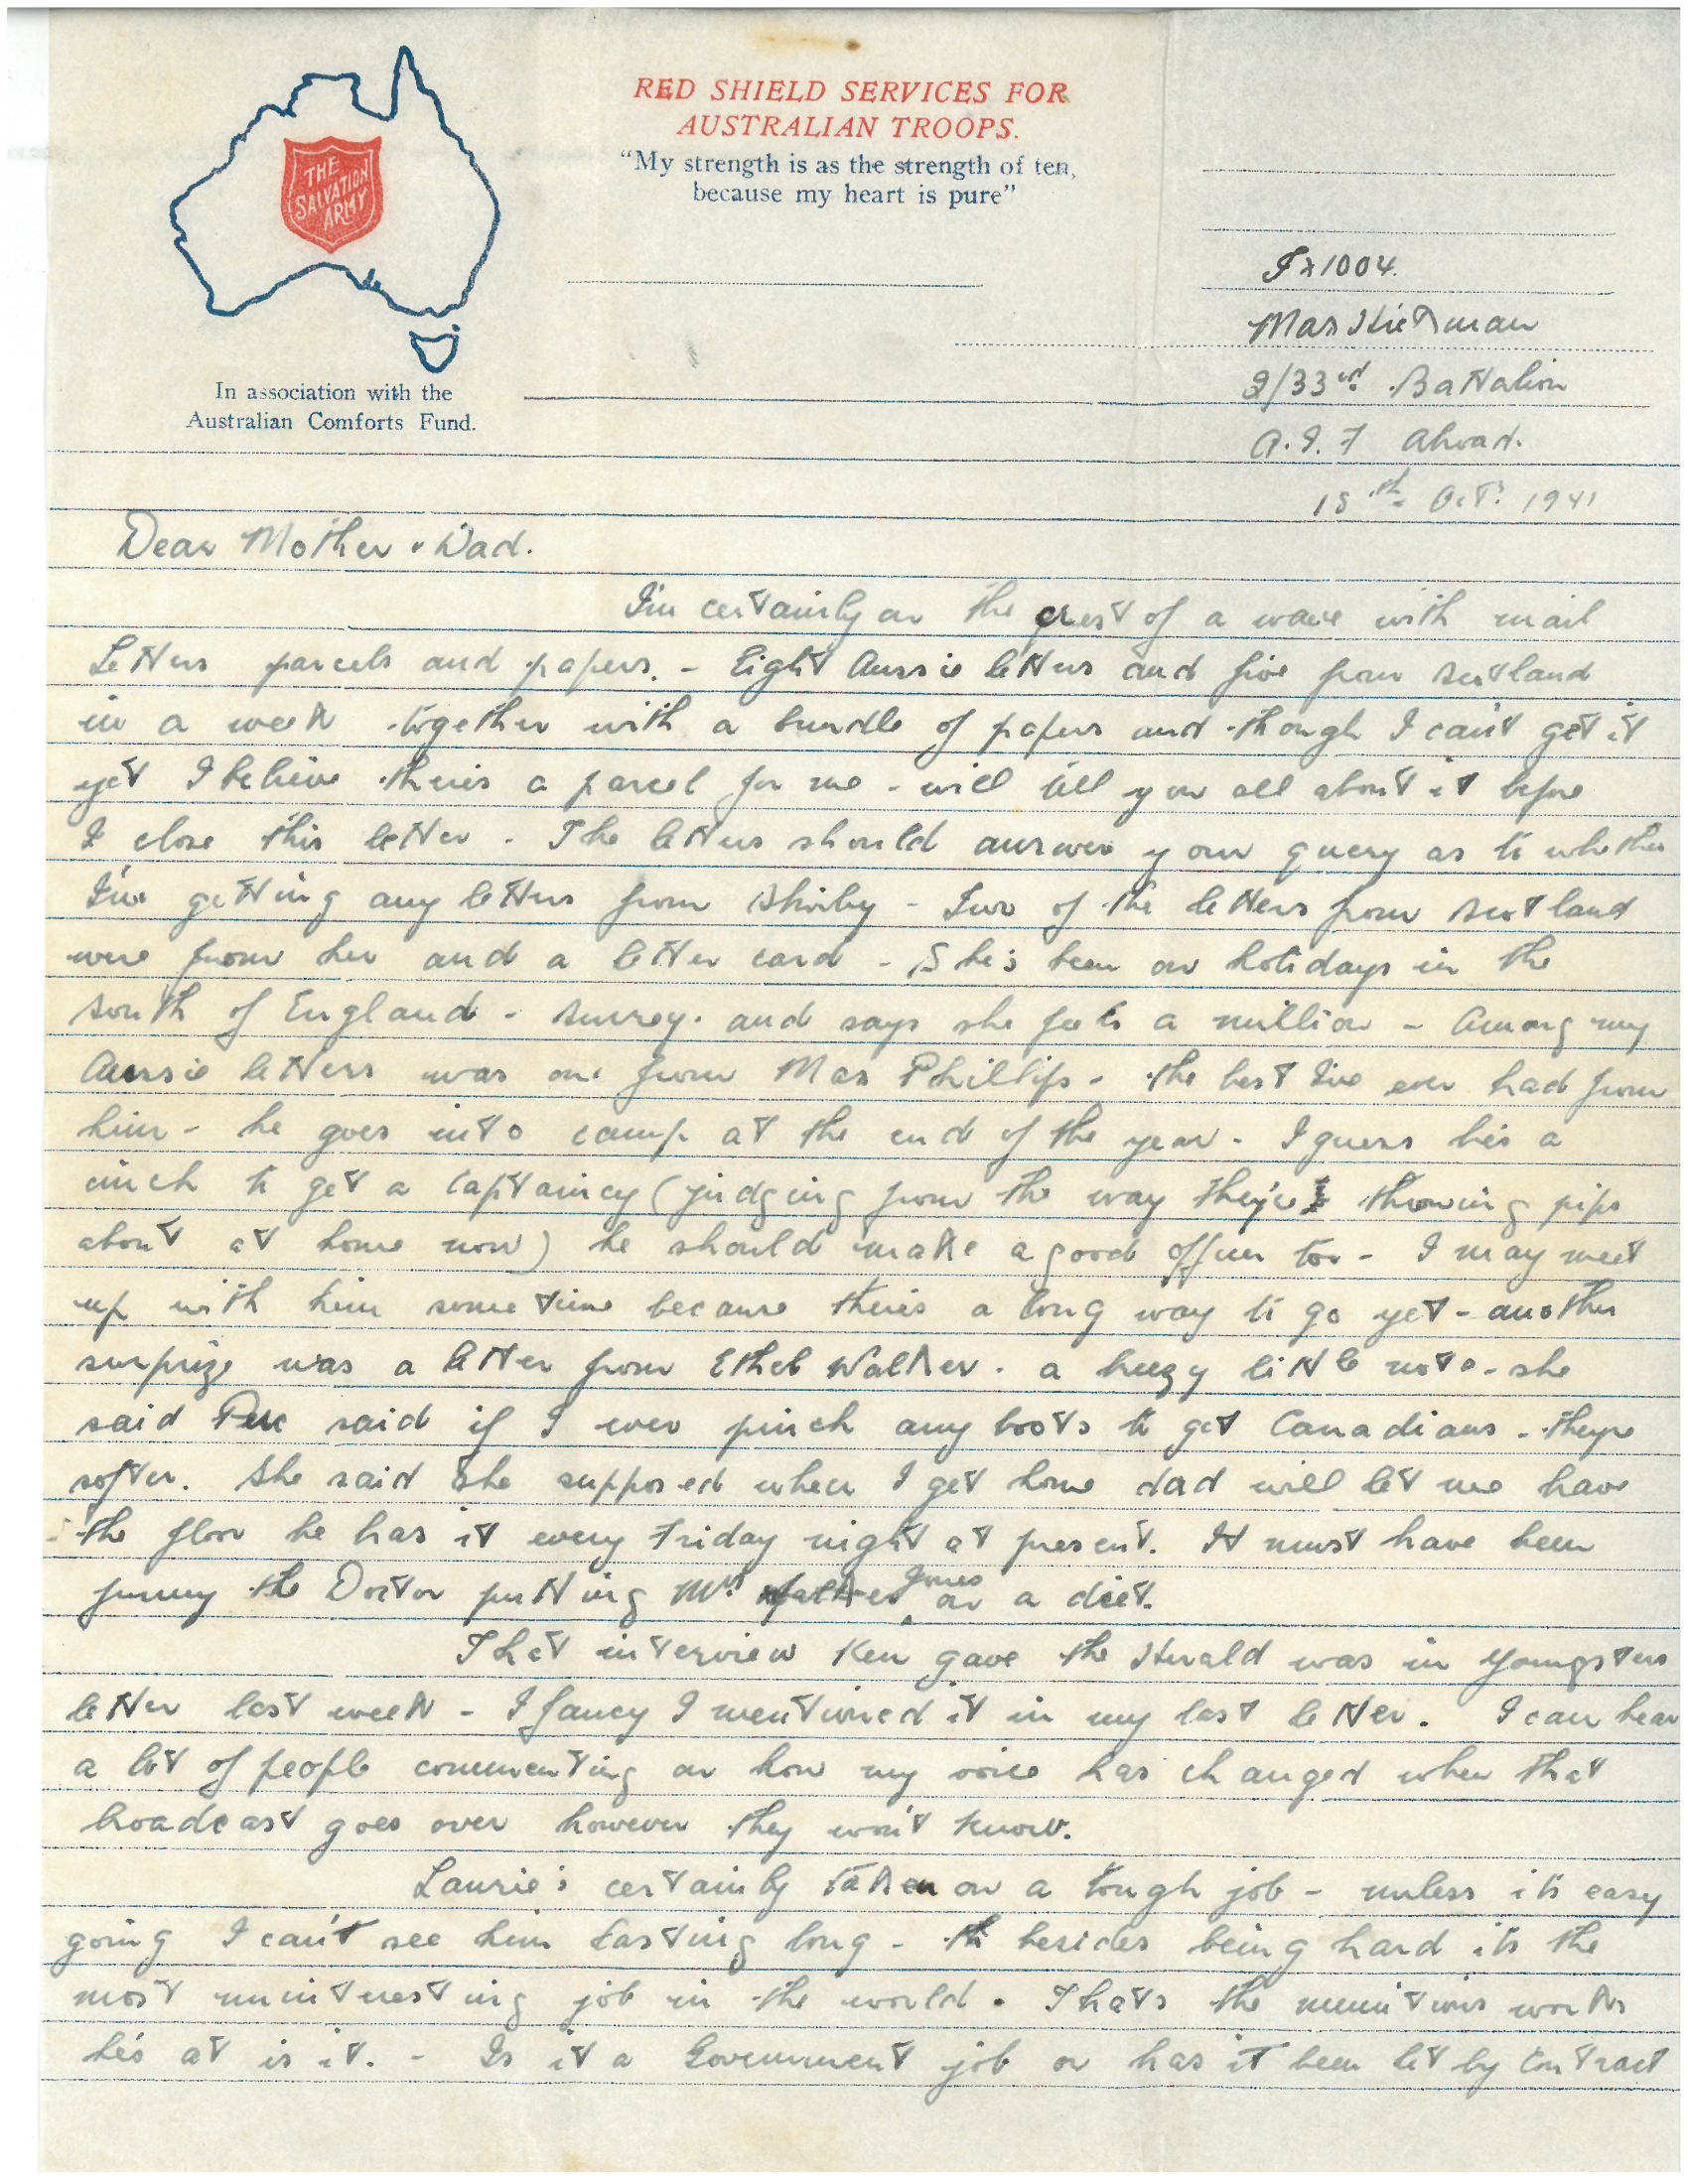 THE
SALVATION
ARMY
In association with the
Australian Comforts Fund.
RED SHIELD SERVICES FOR
AUSTRALIAN TROOPS.
"My strength is as the strength of ten,
because my heart is pure"
1004.
Max Hickman
2/33rd Battalion
A.I.F Abroad.
15th Oct. 1941
Dear Mother & Dad.
I'm certainly on the crest of a wave with mail
Letters parcels and papers. - Eight Aussie letters and five from Scotland
in a week together with a bundle of papers and though I can't get it
yet I believe there's a parcel for me - will tell you all about it before
I close this letter. The letters should answer your query as to whether
I'm getting any letters from Shirley - Two of the letters from Scotland
were from her and a letter card - She's been on holidays in the
south of England - Surrey. and says she feels a million - Among my
Aussie letters was one from Max Phillips - the best I've ever had from
him - he goes into camp at the end of the year. I guess he's a
cinch to get a Captaincy (judging from the way they're throwing pips
about at home now) he should make a good officer too - I may meet
up with him some time because there's a long way to go yet - another
surprize was a letter from Ethel Walker. a breezy little note - she
said said if I ever pinch any boots to get Canadians - they're
softer. She said she supposed when I get home dad will let me have
the floor he has it every Friday night at present. It must have been
funny the Doctor putting Mrs Jones on a diet.
That interview Ken gave the Herald was in Youngsters
letter last week - I fancy I mentioned it in my last letter. I can hear
a lot of people commenting on how my voice has changed when that
broadcast goes over however they won't know.
Laurie's certainly taken on a tough job - unless its easy
going I can't see him lasting long - besides being hard its the
most uninteresting job in the world. Thats the munitions works
he's at is it. - Is it a Government job or has it been let by Contract